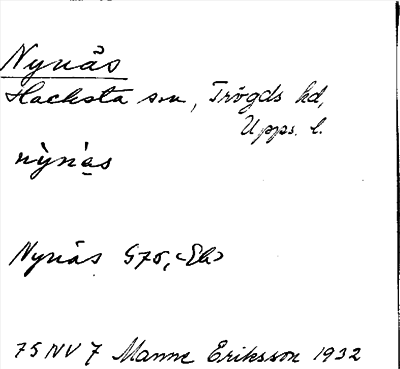 Nynäs
Hacksta sn, Trögds hd,
Upps. l.
nỳnàs
Nynäs G75, <Eb>
75 NV 7 Manne Eriksson 1932